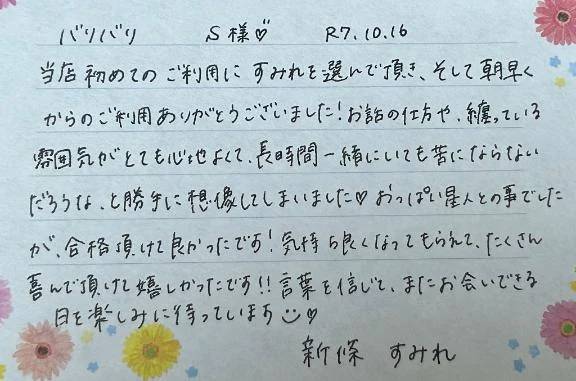 バリバリ S様♡ R7.10.16
当店初めてのご利用に すみれを選んで頂き、そして朝早く
からのご利用ありがとうございました!お話の仕方や、纏っている
雰囲気がとても心地よくて、長時間一緒にいても苦にならない
だろうな、と勝手に想像してしまいました♡ おっぱい星人との事でした
が、合格頂けて良かったです!気持ち良くなってもらえて、たくさん
喜んで頂けて嬉しかったです!!言葉を信じて、またお会いできる
日を楽しみに待っています☺♡
新條 すみれ